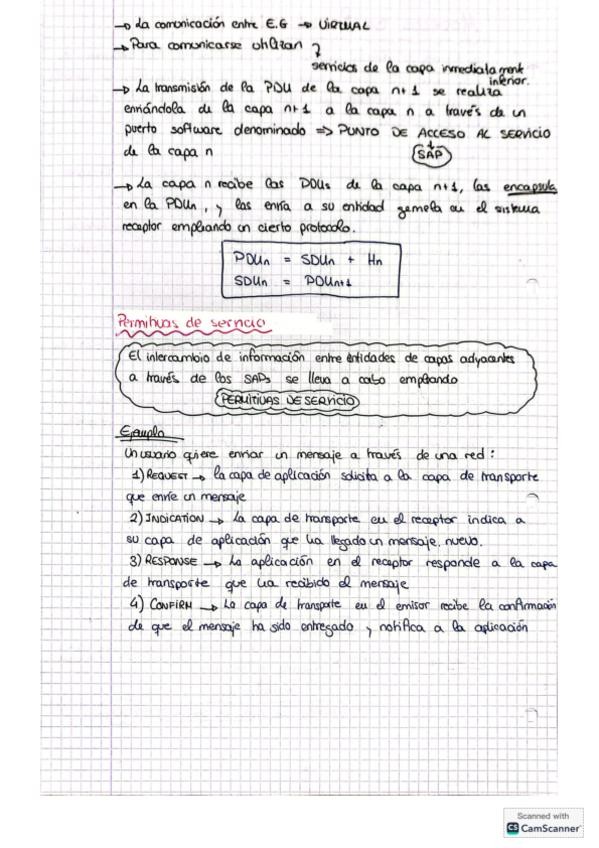 → La comunicación entre E.G → VIRTUAL
→ Para comunicarse utilizan
servicios de la capa inmediatamente
inferior.
→ La transmisión de la PDU de la capa n+1 se realiza
enviándola de la capa n+1 a la capa n a través de un
puerto software denominado => PUNTO DE ACCESO AL SERVICIO
de la capa n
SAP
→ La capa n recibe las PDUs de la capa n+1, las encapsula
en la PDUn, y las envía a su entidad gemela en el sistema
receptor empleando un cierto protocolo.
PDUn = SDUn + Hn
SDUn = PDUn+1
Permitivas de servicio
El intercambio de información entre entidades de capas adyacentes
a través de los SAPs se lleva a cabo empleando
PERMITIVAS DE SERVICIO
Ejemplo
Un usuario quiere enviar un mensaje a través de una red:
1) REQUEST → la capa de aplicación solicita a la capa de transporte
que envíe un mensaje
2) INDICATION → La capa de transporte en el receptor indica a
su capa de aplicación que ha llegado un mensaje nuevo.
3) RESPONSE → La aplicación en el receptor responde a la capa
de transporte que ha recibido el mensaje
4) CONFIRM → La capa de transporte en el emisor recibe la confirmación
de que el mensaje ha sido entregado y notifica a la aplicación
Scanned with
CS CamScanner